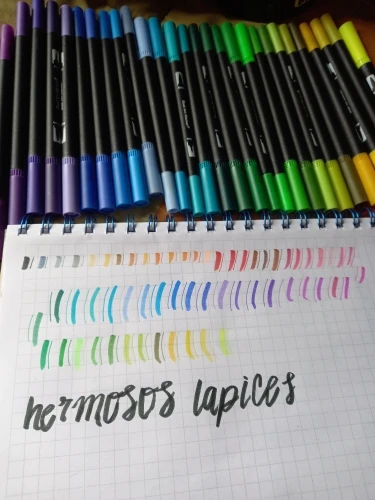 hermosos lapices